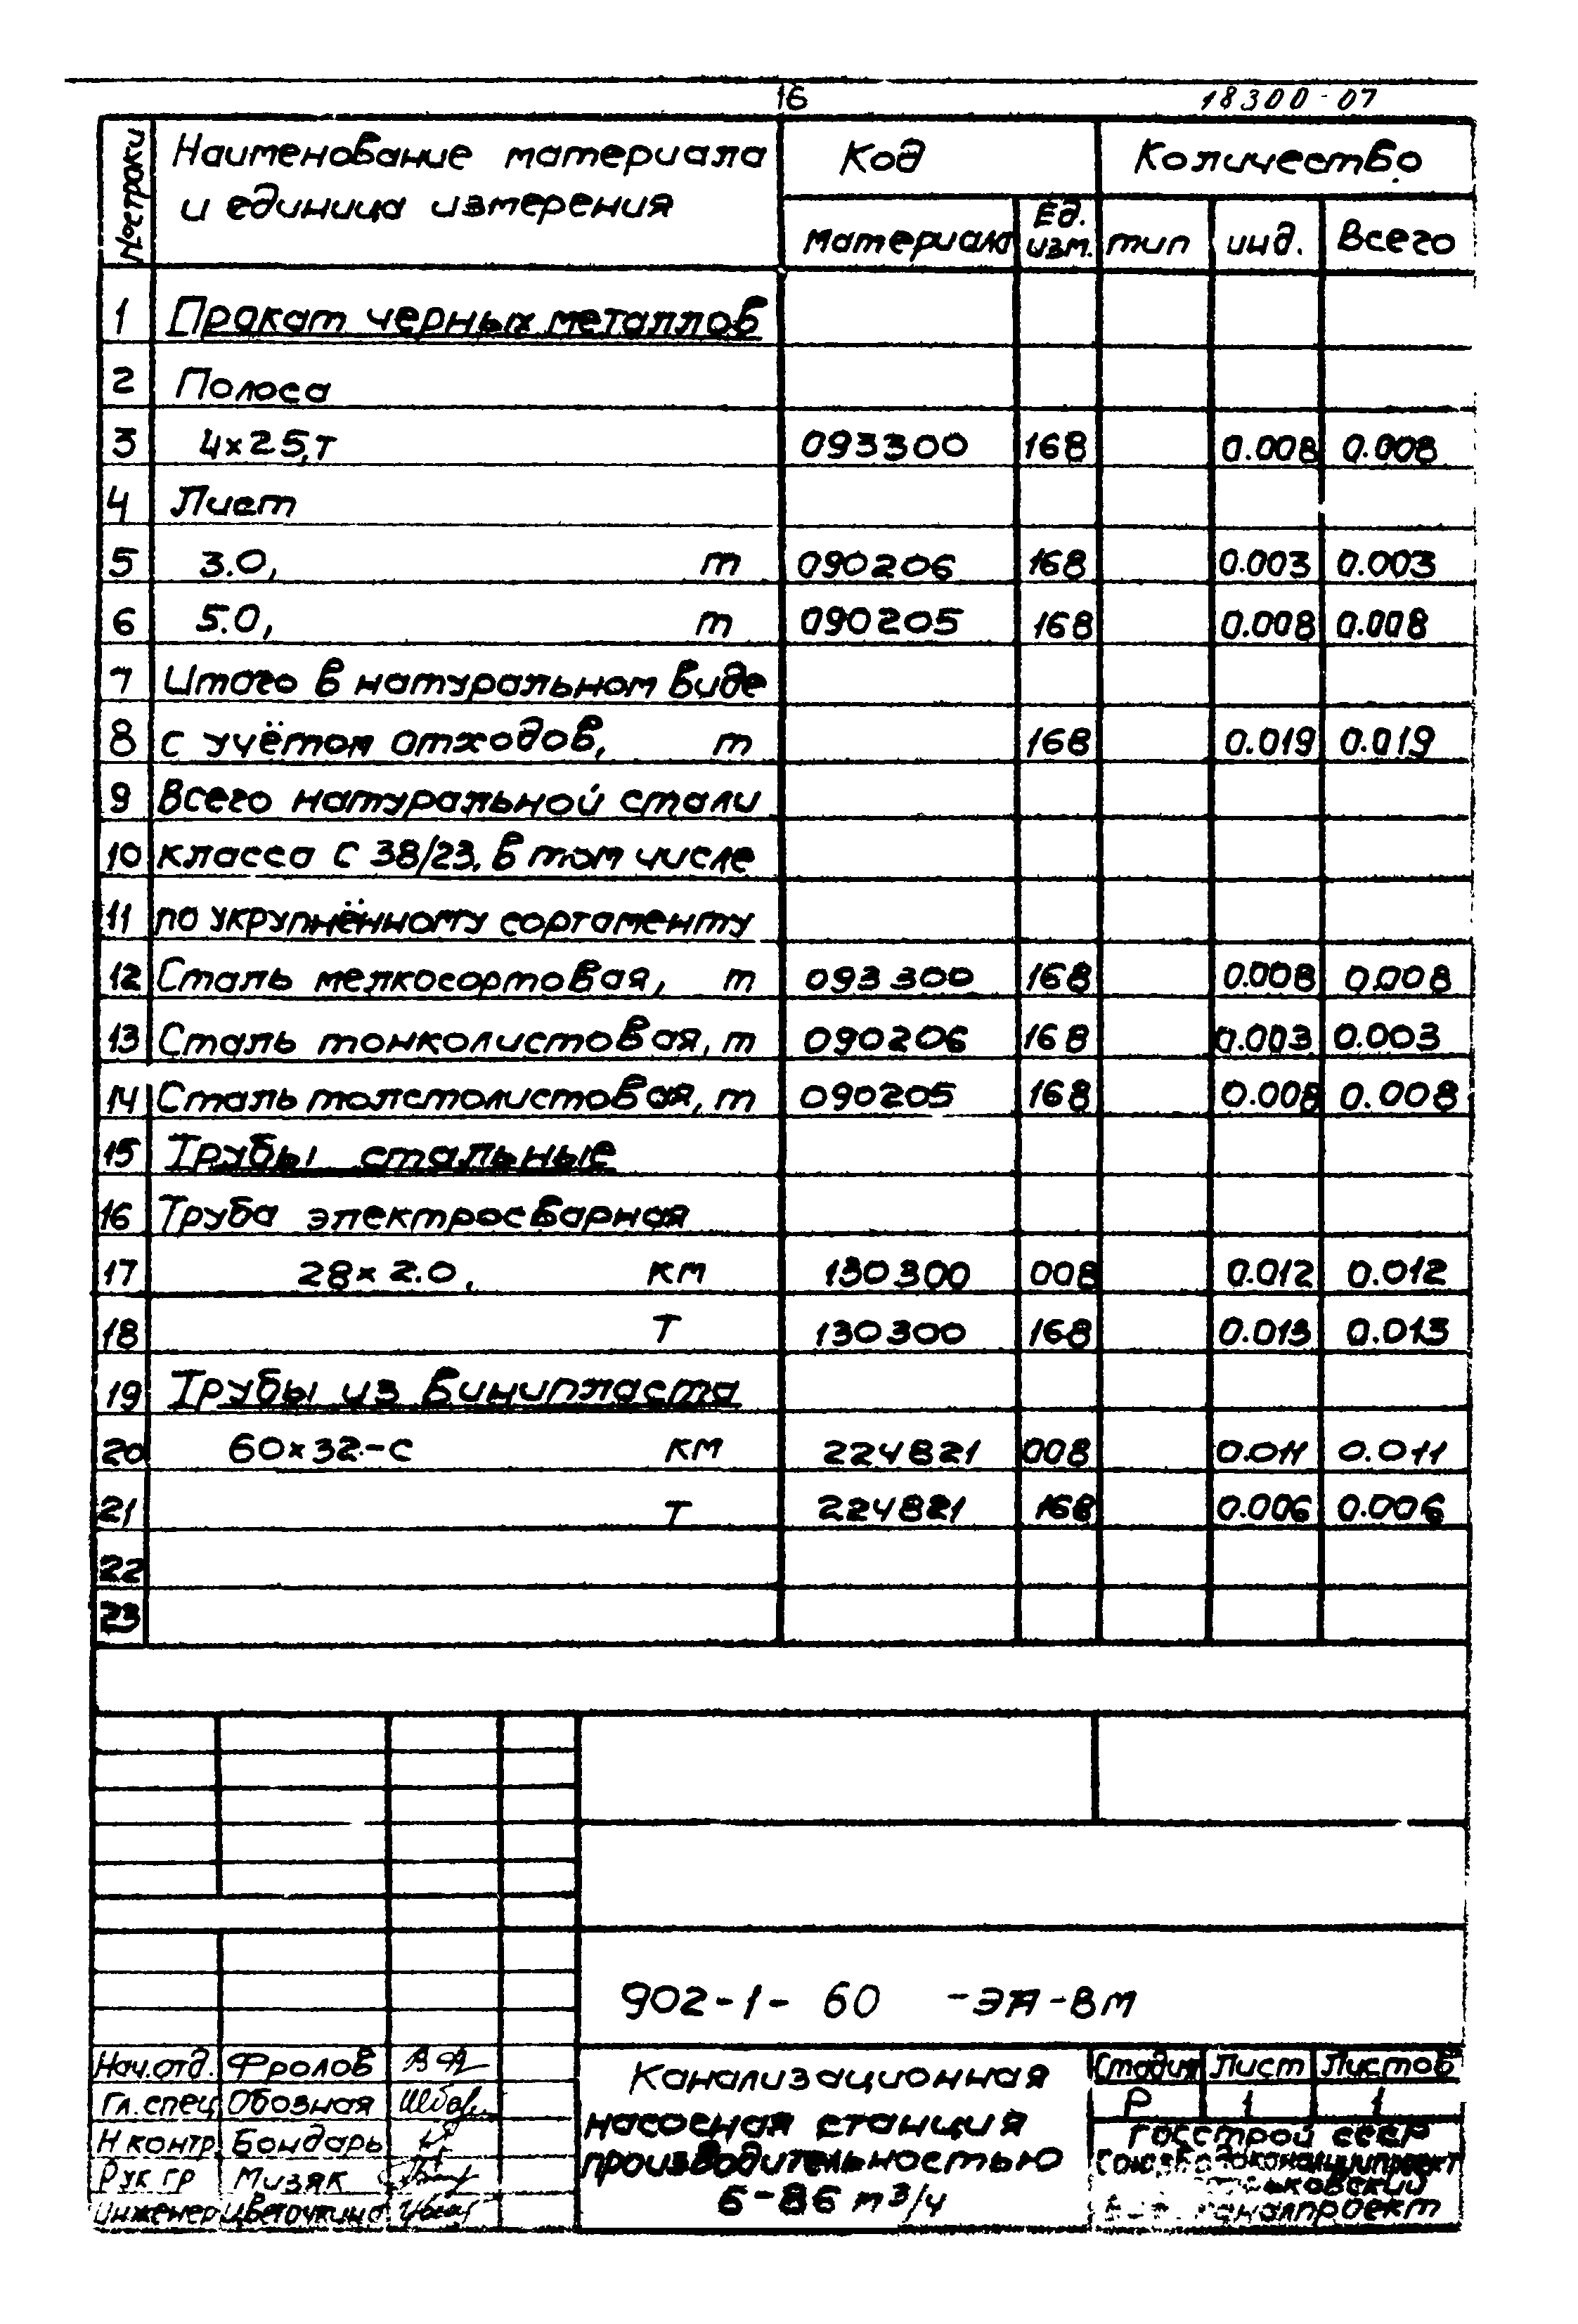 16
18300-07
№ строки
Наименование материала
и единица измерения
Код
Количество
материала
Ед.
изм.
тип
инд.
Всего
1 Прокат черных металлов
2 Полоса
3 4х25,т 093300 168 0.008 0.008
4 Лист
5 3.0, т 090206 168 0.003 0.003
6 5.0, т 090205 168 0.008 0.008
7 Итого в натуральном виде
8 с учётом отходов, т 168 0.019 0.019
9 Всего натуральной стали
10 класса С 38/23, в том числе
11 по укрупнённому сортаменту
12 Сталь мелкосортовая, т 093300 168 0.008 0.008
13 Сталь тонколистовая, т 090206 168 0.003 0.003
14 Сталь толстолистовая, т 090205 168 0.008 0.008
15 Трубы стальные
16 Труба электросварная
17 28х2.0, км 130300 008 0.012 0.012
18 Т 130300 168 0.013 0.013
19 Трубы из винипласта
20 60х32-С км 224821 008 0.011 0.011
21 Т 224821 168 0.006 0.006
22
23
902-1- 60 -ЭА-8м
Нач.отд. Фролов
Гл.спец Обозная
Н контр Бондарь
Рук гр Мизяк
Инженер Цветочкина
Канализационная
насосная станция
производительностью
6-86 м³/ч
Стадия Лист Листов
Р 1 1
Госстрой СССР